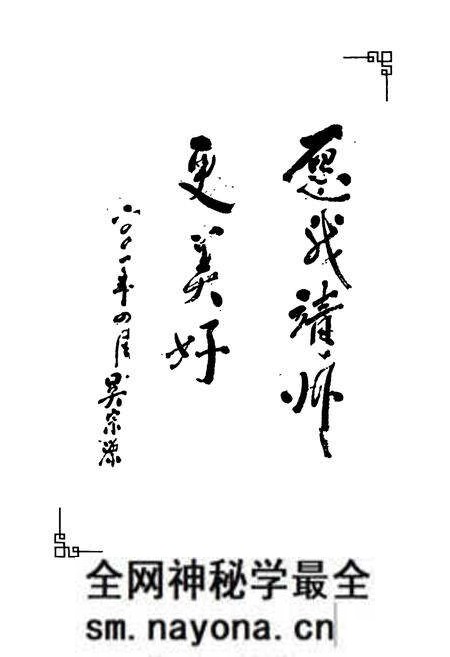 愿我靖师
更美好
二〇〇一年四月吴宗
全网神秘学最全
sm.nayona.cn